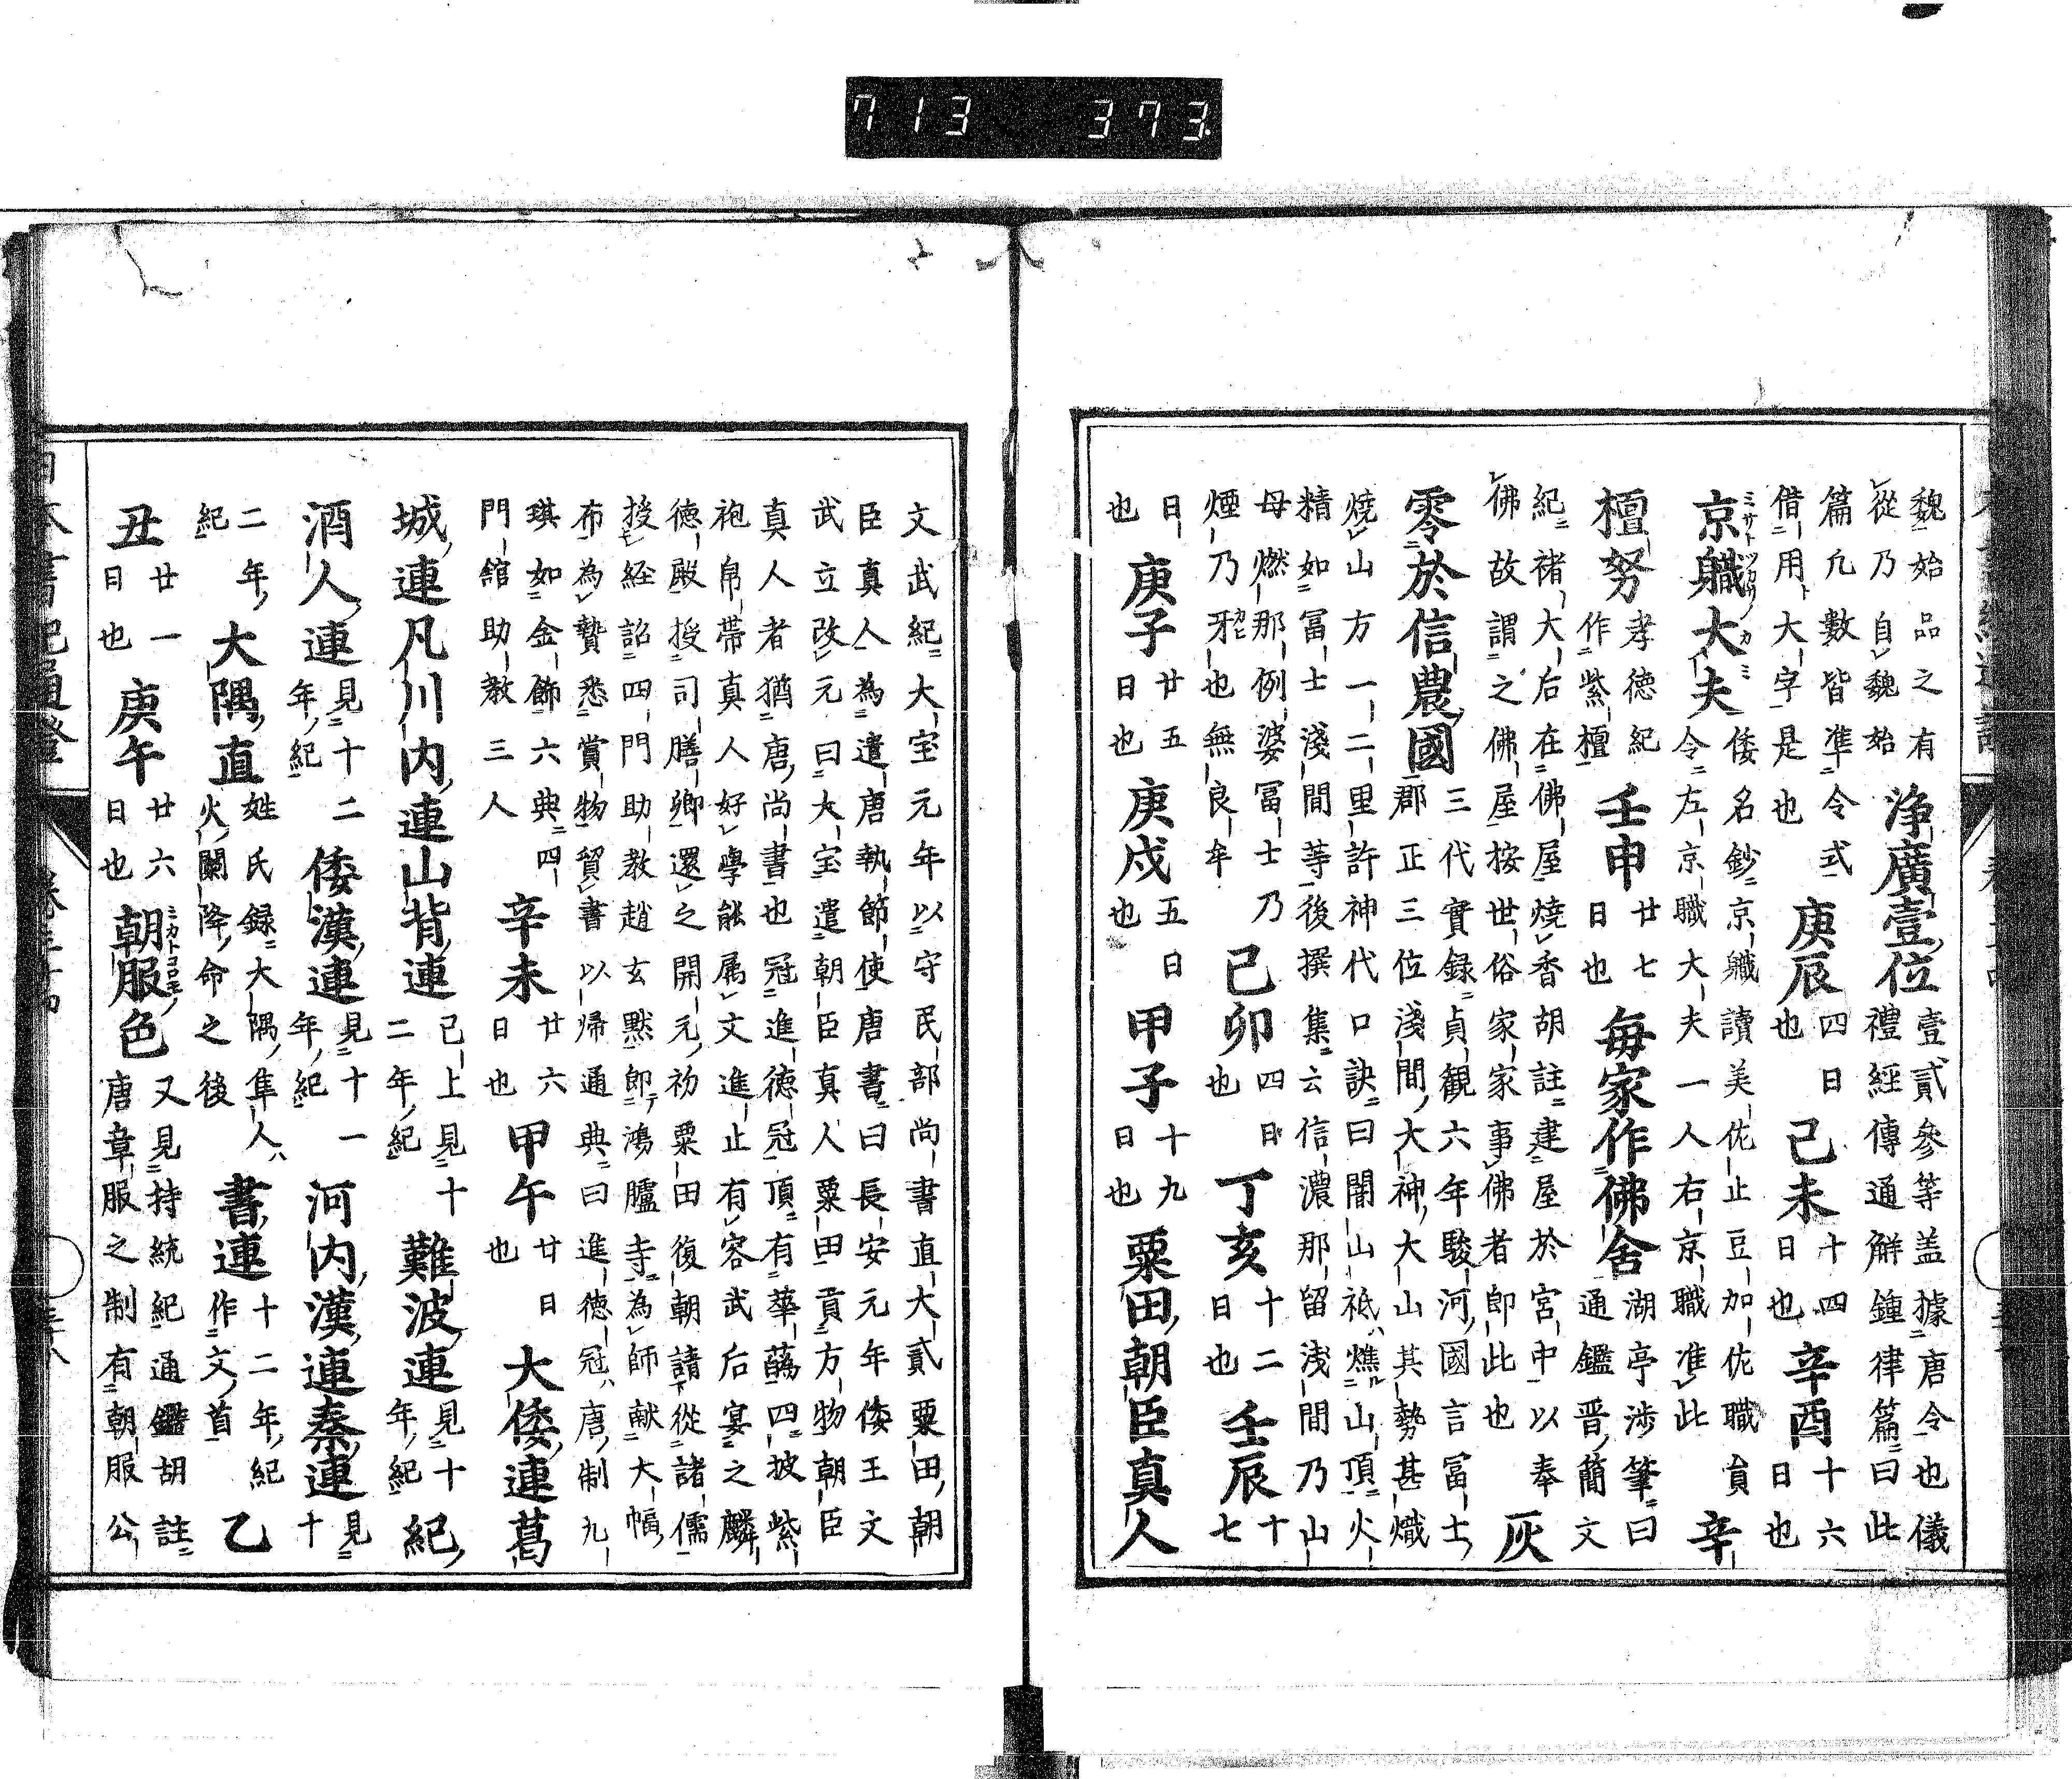 713 373
魏始品之有
從乃自魏始
浄廣壹位
壹貳參等盖據唐令也儀
禮經傳通解鍾律篇曰此
篇凢數皆準令式
借用大字是也
庚辰
四日
也
己未
十四
日也
辛酉
十六
日也
京職大夫
ミサトツカサノカミ
倭名鈔京職讀美佐止豆加佐職員
令左京職大夫一人右京職准此
辛
檀努
孝德紀
作紫檀
壬申
廿七
日也
毎家作佛舍
湖亭渉筆曰
通鑑晋簡文
紀褚大后在佛屋燒香胡註建屋於宮中以奉
佛故謂之佛屋按世俗家家事佛者即此也
灰
零於信農國
三代實録貞観六年駿河國言冨士
郡正三位淺間大神大山其勢甚熾
燒山方一二里許神代口訣曰闇山祇燋山頂火
精如冨士淺間等後撰集云信濃那留浅間乃山
母燃那例婆冨士乃
煙乃牙也無良牟
己卯
四日
也
丁亥
十二
日也
壬辰
十七
日
也
庚子
廿五
日也
庚戌
五日
也
甲子
十九
日也
粟田朝臣真人
文武紀大宝元年以守民部尚書直大貳粟田朝
臣真人為遣唐執節使唐書曰長安元年倭王文
武立改元曰大宝遣朝臣真人粟田貢方物朝臣
真人者猶唐尚書也冠進德冠頂有華蘤四披紫
袍帛帯真人好學能属文進止有容武后宴之麟
德殿授司膳卿還之開元初粟田復朝請從諸儒
授経詔四門助教趙玄黙即鴻臚寺為師献大幅
布為贄悉賞物貿書以帰通典曰進德冠唐制九
琪如金飾六典四
門舘助教三人
辛未
廿六
日也
甲午
廿日
也
大倭連葛
城連凡川内連山背連
已上見十
二年紀
難波連
見十
年紀
紀
酒人連
見十二
年紀
倭漢連
見十一
年紀
河内漢連秦連
見
十
二年
紀
大隅直
姓氏録大隅隼人
火闌降命之後
書連
十二年紀
作文首
乙
丑
廿一
日也
庚午
廿六
日也
朝服色
ミカトコロモ
又見持統紀通鑑胡註
唐章服之制有朝服公
日本書紀通證